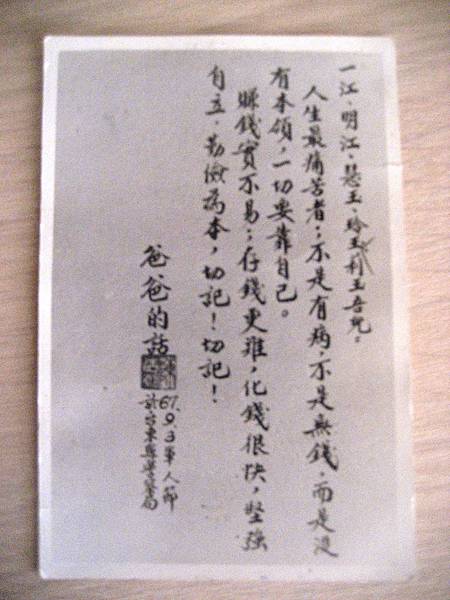 一江、明江、慧玉、玲玉、利玉吾兒：
人生最痛苦者：不是有病，不是無錢，而是沒
有本領，一切要靠自己。
賺錢實不易；存錢更難，化錢很快，堅強
自立，勤儉為本，切記！切記！
爸爸的話
67.9.3軍人節
於台東縣警察局